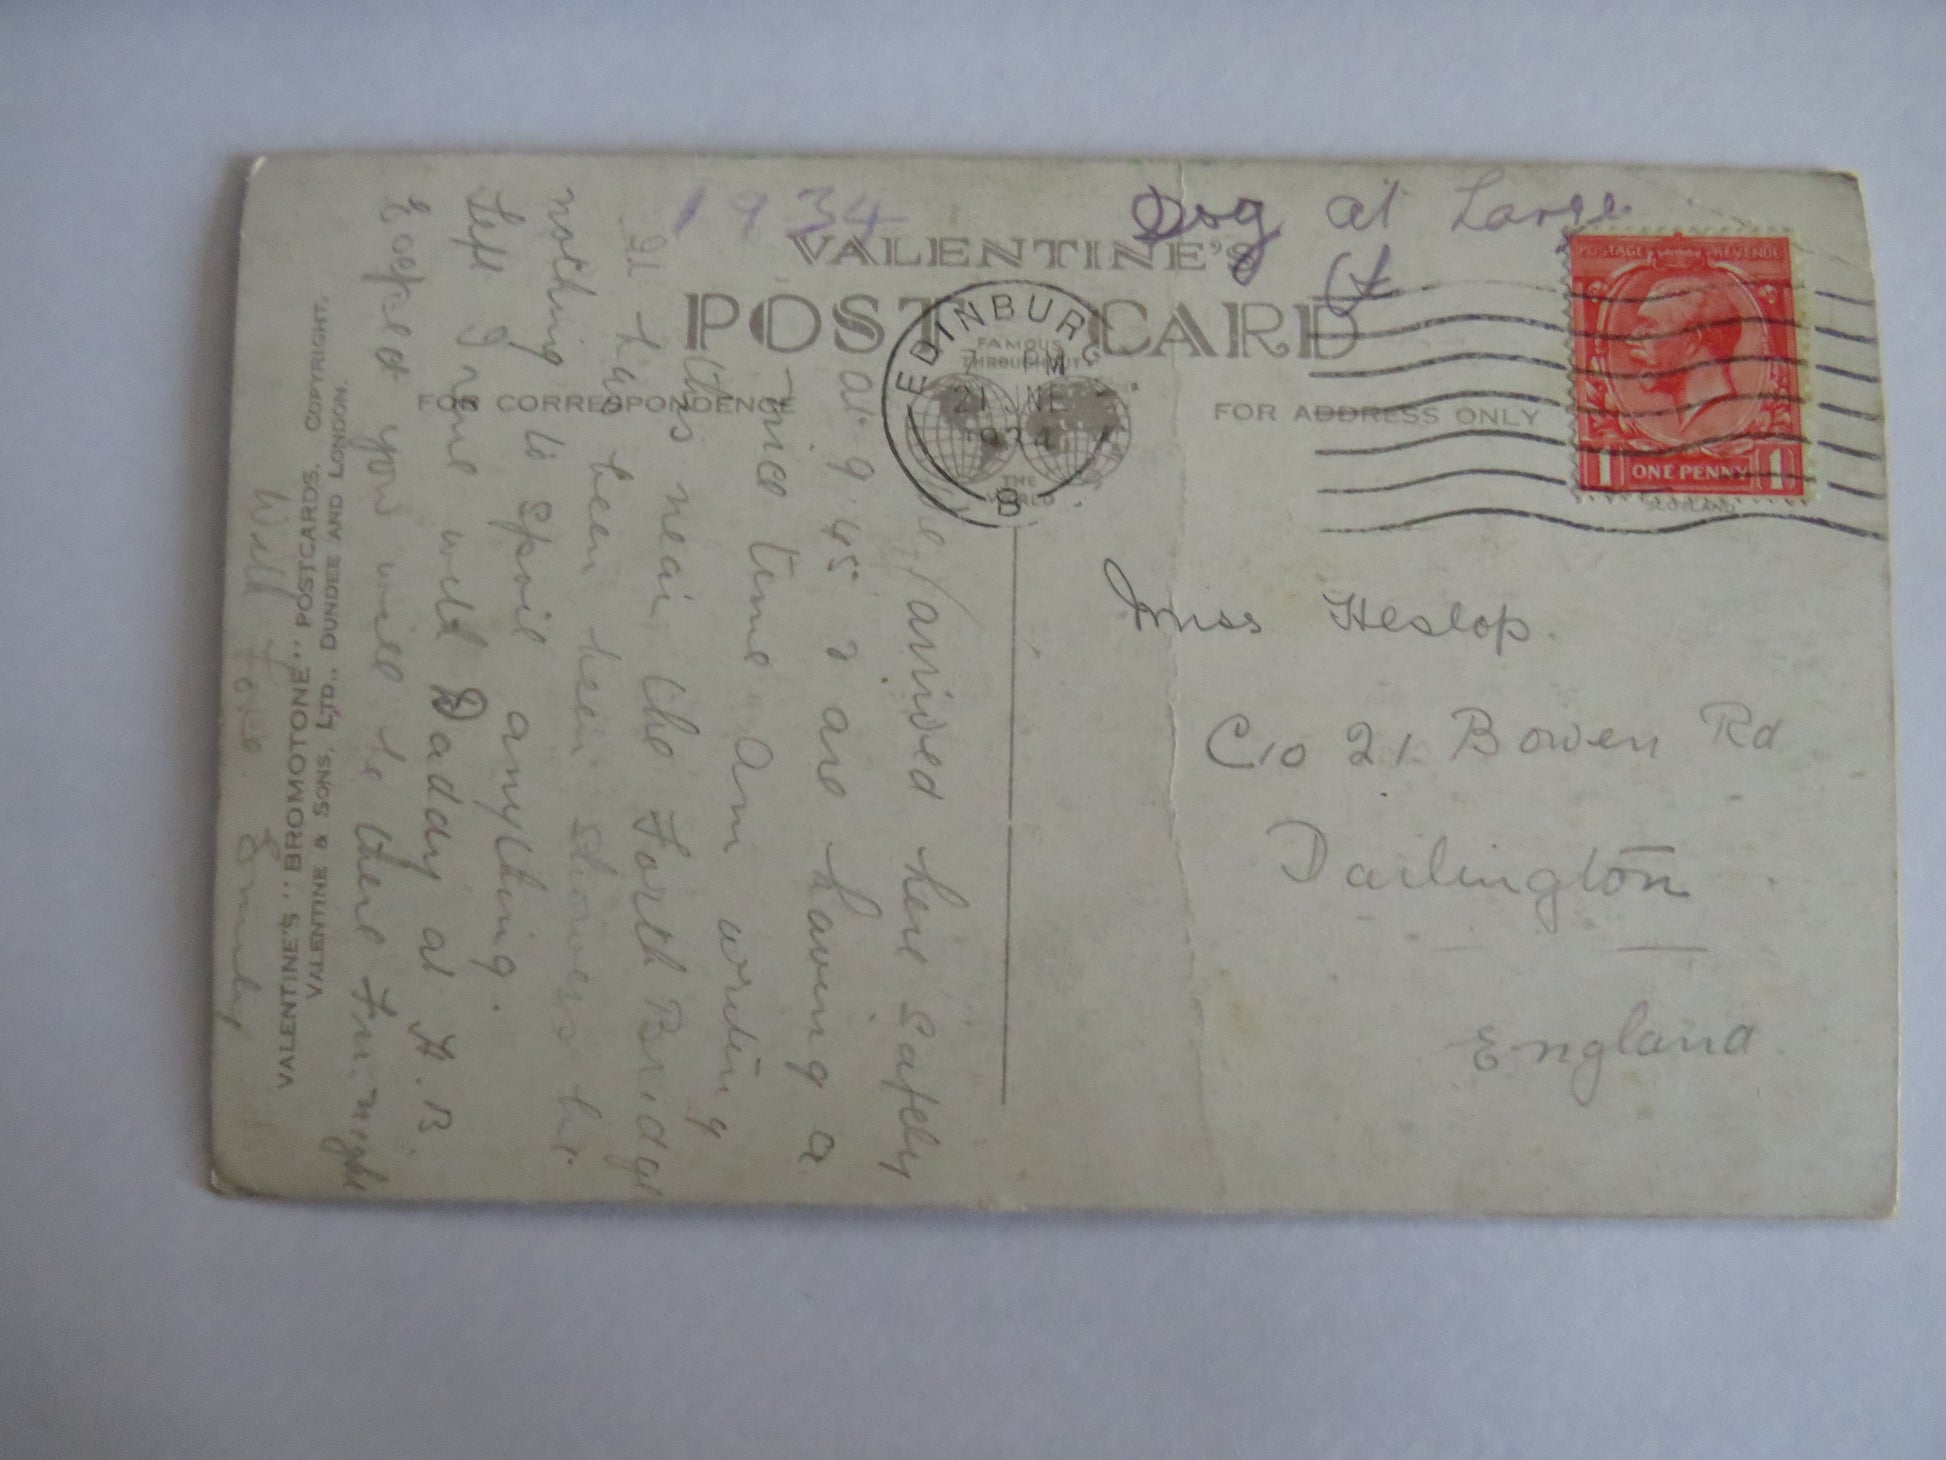 1934
Dog at Large
VALENTINE'S
POST CARD
FAMOUS
THROUGHOUT
THE
WORLD
FOR CORRESPONDENCE
FOR ADDRESS ONLY
EDINBURG
7 PM
21 JNE
1934
B
POSTAGE REVENUE
1 ONE PENNY 1
SCOTLAND
Miss Heslop.
C/o 21 Bowen Rd
Darlington
England
arrived here Safely
at 9.45 & are having a
nice time. Am writing
this near the Forth Bridge
It has been showers but
nothing to spoil anything.
Left Irene with Daddy at H.B
Expect you will be there Fri. night
With Love. Emily
VALENTINE'S "BROMOTONE" POSTCARDS. COPYRIGHT.
VALENTINE & SONS, LTD., DUNDEE AND LONDON.